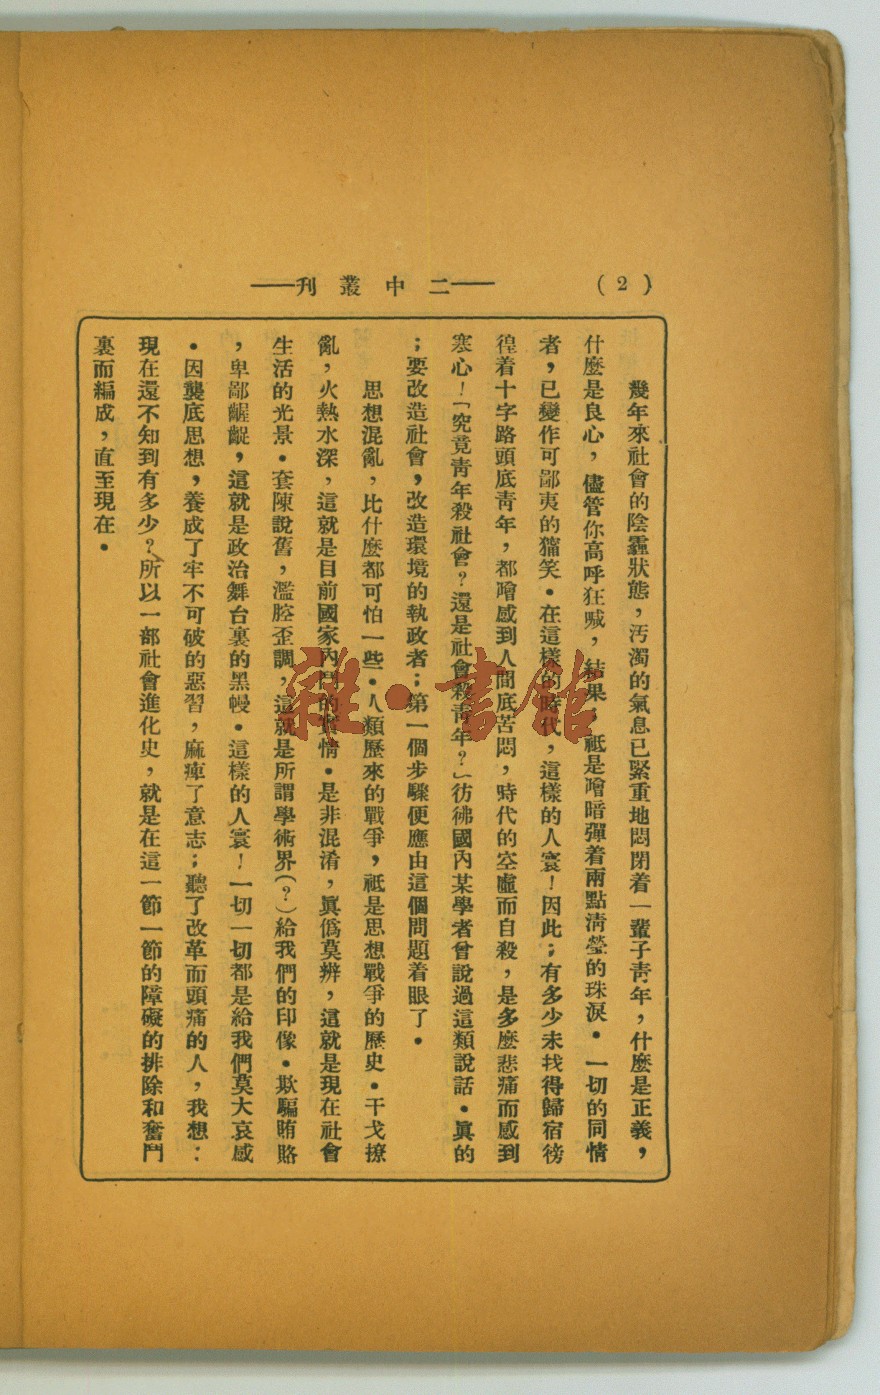 (2)
二中叢刊
幾年來社會的陰霾狀態，汚濁的氣息已緊重地悶閉着一輩子靑年，什麼是正義，
什麼是良心，儘管你高呼狂喊，結果，祗是噌暗彈着兩點淸瑩的珠淚．一切的同情
者，已變作可鄙夷的獰笑．在這樣的時代，這樣的人寰！因此；有多少未找得歸宿徬
徨着十字路頭底靑年，都噌感到人間底苦悶，時代的空虛而自殺，是多麼悲痛而感到
寒心！「究竟靑年殺社會？還是社會殺靑年？」彷彿國內某學者曾說過這類說話．眞的
；要改造社會，改造環境的執政者；第一個步驟便應由這個問題着眼了．
思想混亂，比什麼都可怕一些．人類歷來的戰爭，祗是思想戰爭的歷史．干戈撩
亂，火熱水深，這就是目前國家內鬥的實情．是非混淆，眞僞莫辨，這就是現在社會
生活的光景．套陳說舊，濫腔歪調，這就是所謂學術界（？）給我們的印像．欺騙賄賂
，卑鄙齷齪，這就是政治舞台裏的黑幔．這樣的人寰！一切一切都是給我們莫大哀感
．因襲底思想，養成了牢不可破的惡習，麻痺了意志；聽了改革而頭痛的人，我想：
現在還不知到有多少？所以一部社會進化史，就是在這一節一節的障礙的排除和奮鬥
裏而編成，直至現在．
雜·書館